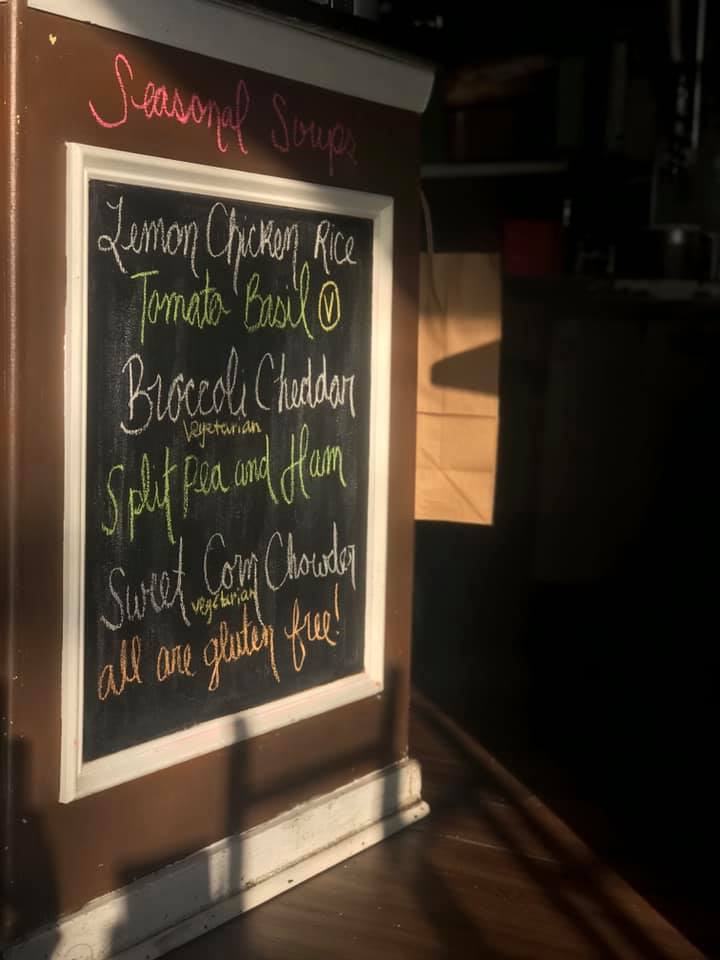 Seasonal Soups
Lemon Chicken Rice
Tomato Basil V
Broccoli Cheddar
vegetarian
Split Pea and Ham
Sweet Corn Chowder
vegetarian
all are gluten free!